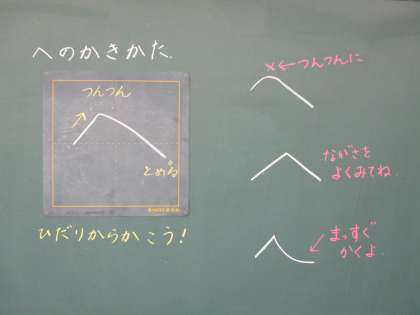 へのかきかた.
つんつん
とめる
ひだりからかこう!
×←つんつんに
ながさを
よくみてね.
まっすぐ
かくよ.